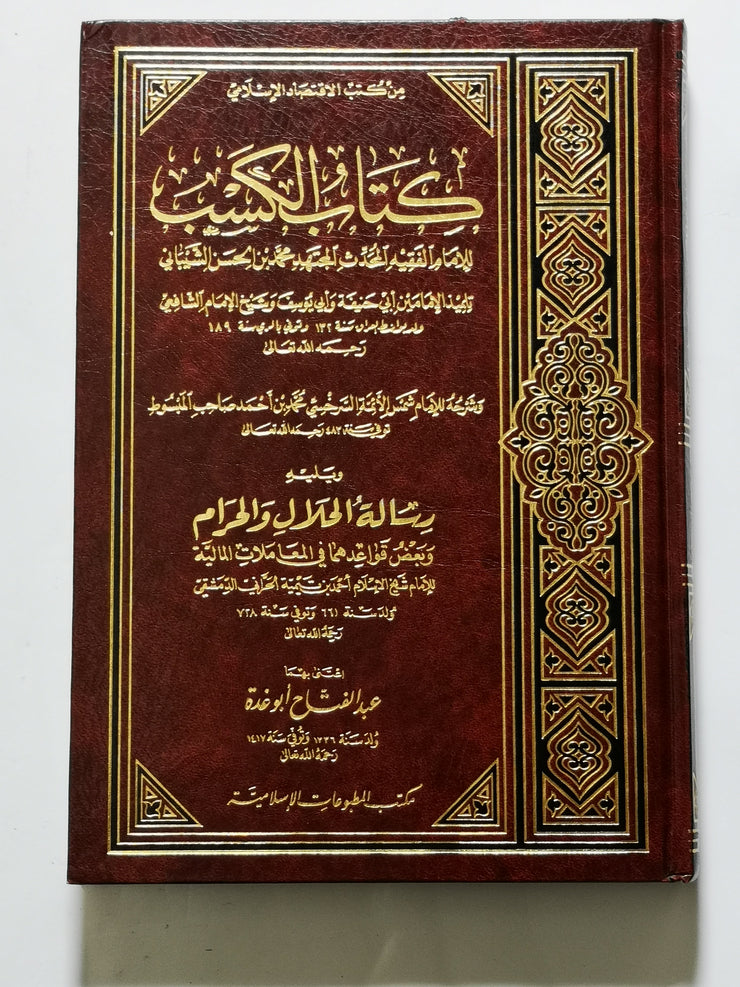 من كتب الاقتصاد الإسلامي
كتاب الكسب
للإمام الفقيه المحدث المجتهد محمد بن الحسن الشيباني
تلميذ الإمامين أبي حنيفة وأبي يوسف وشيخ الإمام الشافعي
ولد بواسط بالعراق سنة ١٣٢ وتوفي بالري سنة ١٨٩
رحمه الله تعالى
وشرحه للإمام شمس الأئمة السرخسي محمد بن أحمد صاحب المبسوط
توفي سنة ٤٨٣ رحمه الله تعالى
ويليه
رسالة الحلال والحرام
وبعض قواعدهما في المعاملات المالية
للإمام شيخ الإسلام أحمد بن تيمية الحراني الدمشقي
ولد سنة ٦٦١ وتوفي سنة ٧٢٨
رحمه الله تعالى
اعتنى بهما
عبد الفتاح أبو غدة
ولد سنة ١٣٣٦ وتوفي سنة ١٤١٧
رحمه الله تعالى
مكتب المطبوعات الإسلامية